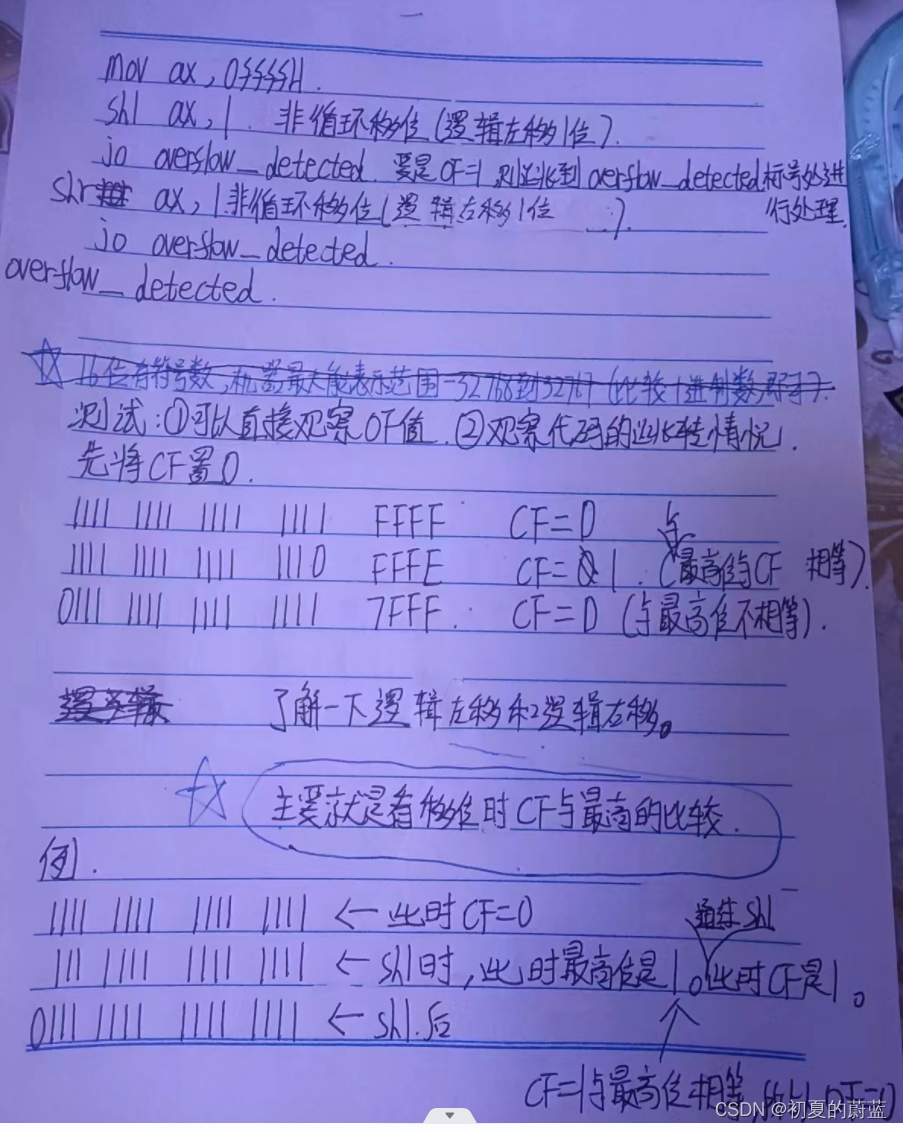 mov ax, 0ffffH
shl ax, 1. 非循环移位(逻辑左移1位).
jo overflow_detected. 要是OF=1, 则跳到overflow_detected标号处进
行处理.
shr ax, 1 非循环移位(逻辑右移1位 ).
jo overflow_detected.
overflow_detected.
16位有符号数,机器最大能表示范围-32768到32767 (比较十进制数即可).
测试:①可以直接观察OF值. ②观察代码的跳转情况.
先将CF置0.
1111 1111 1111 1111 FFFF CF=0 与
1111 1111 1111 1110 FFFE CF=1. (最高位与CF 相等).
0111 1111 1111 1111 7FFF. CF=0 (与最高位不相等).
了解一下逻辑左移和逻辑右移。
主要就是看移位时CF与最高的比较.
例.
1111 1111 1111 1111 ←此时CF=0 通过shl
111 1111 1111 1111 ←shl时,此时最高位是1。此时CF是1。
0111 1111 1111 1111 ←shl.后
CF=1与最高位相等,
CSDN @初夏的蔚蓝